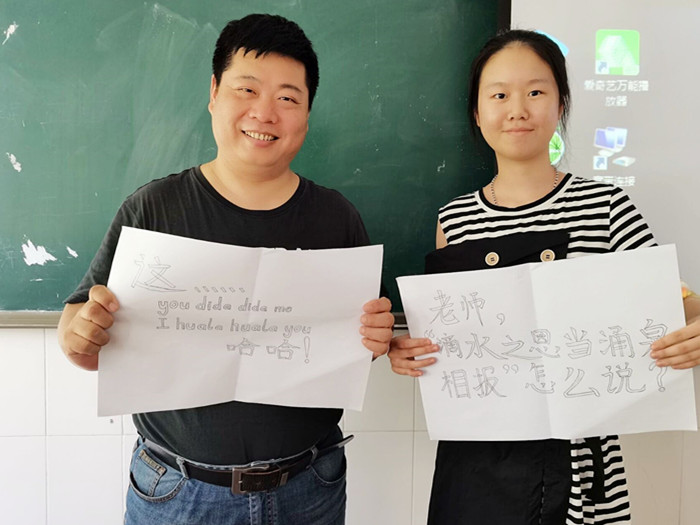 这……
you dida dida me
I huala huala you
哈哈!
老师,
“滴水之恩当涌泉
相报”怎么说?
爱奇艺万能播
放器
宽带连接